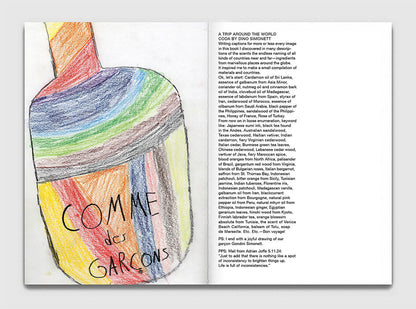 COMME
des
GARÇONS
A TRIP AROUND THE WORLD
COOK BY DINO SIMONETT
Writing captions for more or less every image
in this book I discovered in many descrip-
tions of the scents the endless naming of all
kinds of countries near and far—ingredients
from marvellous places around the globe.
It inspired me to make a small compilation of
materials and countries.
Ok, let's start: Cardamon oil of Sri Lanka,
essence of galbanum from Asia Minor,
coriander oil, nutmeg oil and cinnamon bark
oil of India, clovebud oil of Madagascar,
essence of labdanum from Spain, styrax of
Iran, cedarwood of Morocco, essence of
olibanum from Saudi Arabia, black pepper of
the Philippines, sandalwood of the Philippi-
nes, Honey of France, Rose of Turkey.
From now on in loose enumeration, keyword
like: Japanese sumi ink, black tea found
in the Andes, Australian sandalwood,
Texan cedarwood, Haitian vetiver, Indian
cardamom, fiery Virginian cedarwood,
Italian cedar, Burmese green tea leaves,
Chinese cedarwood, Lebanese cedar wood,
vetiver of Java, fiery Moroccan spice,
blood oranges from North Africa, palisander
of Brazil, gargantum red wood from Virginia,
blends of Bulgarian roses, Italian bergamot,
saffron from St. Thomas Bay, Indonesian
patchouli, bitter orange from Sicily, Tunisian
jasmine, Indian tuberose, Florentine iris,
Indonesian patchouli, Madagascan vanilla,
galbanum oil from Iran, blackcurrent
extraction from Bourgogne, natural pink
pepper oil from Peru, natural mhyrr oil from
Ethiopia, Indonesian ginger, Egyptian
geranium leaves, hinoki wood from Kyoto,
Finnish labrador tea, orange blossom
absolute from Tunisia, the scent of Venice
Beach California, balsam of Tolu, soap
de Marseille. Etc. Etc. Etc.—Bon voyage!
PS: I end with a joyful drawing of our
garçon Gondini Simonett.
PPS: Mail from Adrian Joffe 5.11.24:
"Just to add that there is nothing like a spot
of inconsistency to brighten things up.
Life is full of inconsistencies."